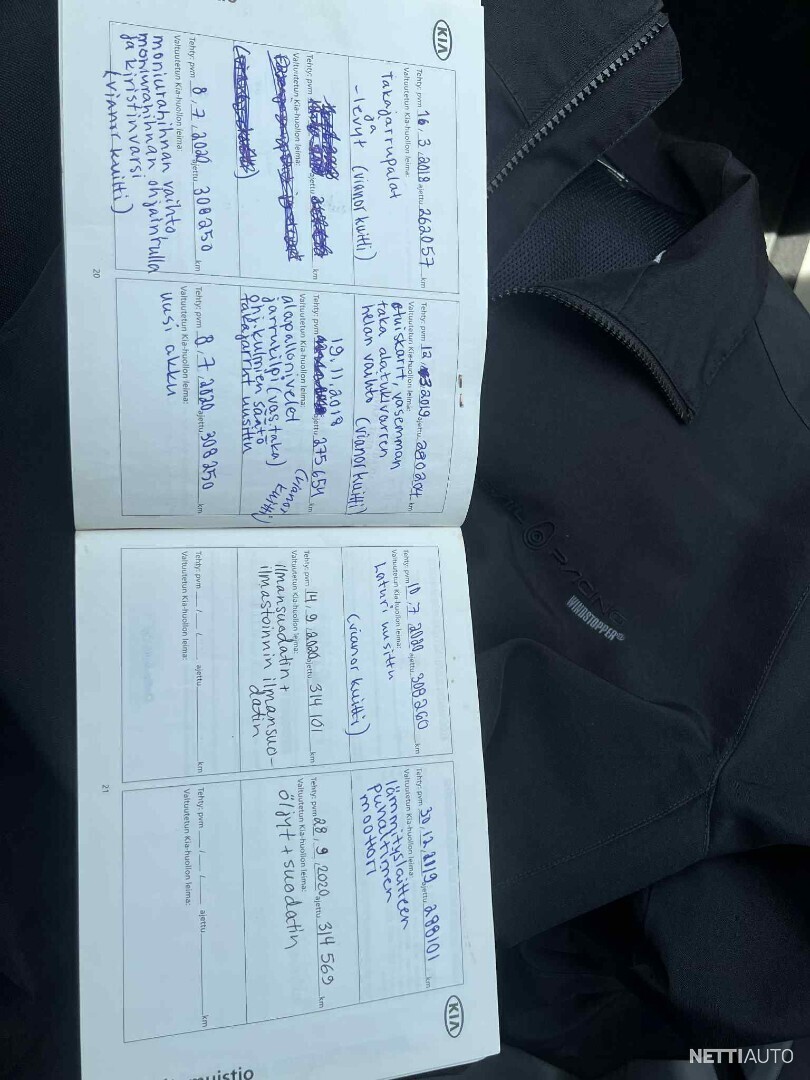 KIA
Tehty: pvm 16 / 3 / 2018 ajettu 262057 km
Valtuutetun Kia-huollon leima:
takajarrupalat
ja
-levyt (vianor kuitti)
Tehty: pvm ajettu km
Valtuutetun Kia-huollon leima:
Tehty: pvm 8 / 7 / 2020 ajettu 308250 km
Valtuutetun Kia-huollon leima:
moniurahihnan vaihto
moniurahihnan ohjainrulla
ja kiristinvarsi
(vianor kuitti)
20
Tehty: pvm 12 / 3 / 2019 ajettu 280204 km
Valtuutetun Kia-huollon leima:
etuiskarit, vasemman
taka alatukivarren
helan vaihto (vianor kuitti)
19.11.2018
Tehty: pvm ajettu 275654 km
Valtuutetun Kia-huollon leima:
alapallonivelet
jarrukilpi (vas.taka)
ohj.kulmien säätö
takajarrut uusittu
(vianor kuitti)
Tehty: pvm 8 / 7 / 2020 308250 km
Valtuutetun Kia-huollon leima:
uusi akku
Tehty: pvm 10 / 7 / 2020 ajettu 308260 km
Valtuutetun Kia-huollon leima:
Laturi uusittu
(vianor kuitti)
Tehty: pvm 14 / 9 / 2020 ajettu 314101 km
Valtuutetun Kia-huollon leima:
ilmansuodatin +
ilmastoinnin ilmansuo-
datin
Tehty: pvm / / ajettu km
Valtuutetun Kia-huollon leima:
21
KIA
Tehty: pvm 30 / 12 / 2019 ajettu 298101 km
Valtuutetun Kia-huollon leima:
lämmityslaitteen
puhaltimen
moottori
Tehty: pvm 28 / 9 / 2020 ajettu 314569 km
Valtuutetun Kia-huollon leima:
öljyt + suodatin
Tehty: pvm / / ajettu km
Valtuutetun Kia-huollon leima:
muistio
RACING
WINDSTOPPER®
NETTIAUTO